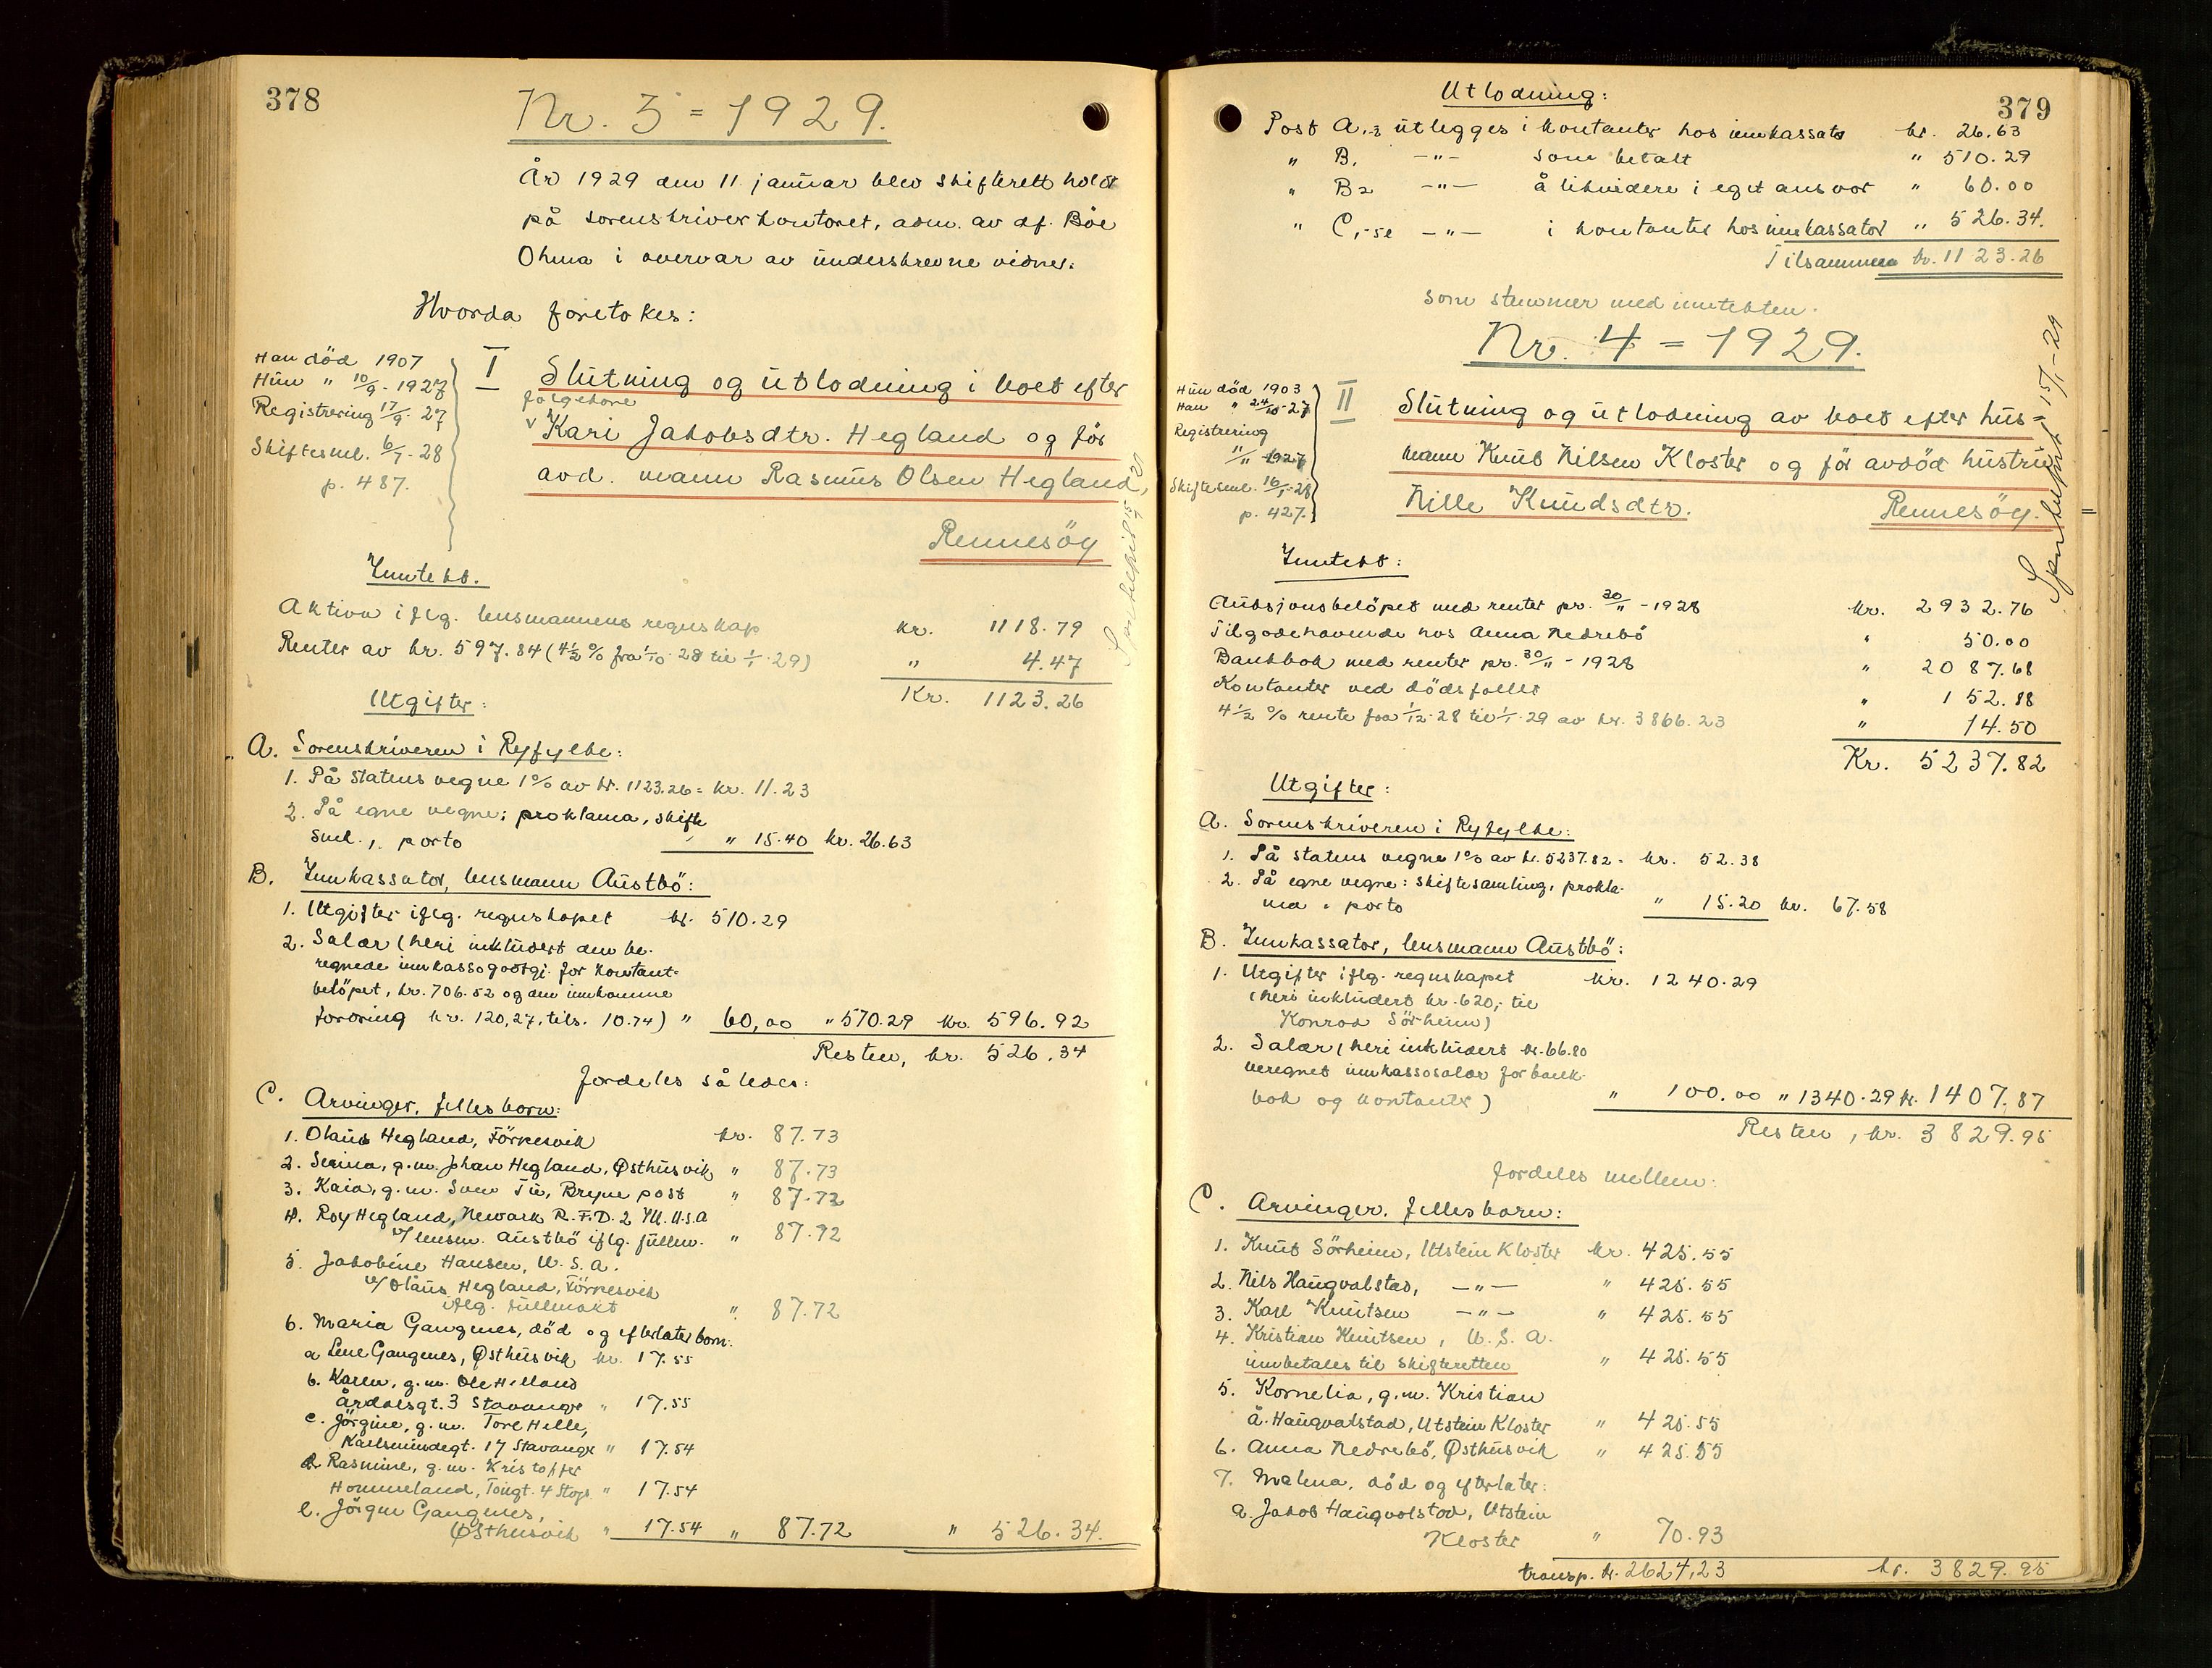 378
Nr. 3 = 1929.
År 1929 den 11. januar blev skifterett holdt
på sorenskriverkontoret, adm. av df. Böe
Ohma i overvær av underskrevne vidner.
Hvorda foretokes:
Han död 1907
Hun " 10/9 - 1927
Registrering 17/9 - 27
Skiftesml. 6/1 - 28
p. 487.
I Slutning og utlodning i boet efter
folgekone
Kari Jakobsdtr. Hegland og för
avd. mann Rasmus Olsen Hegland,
Rennesöy
Inntekt.
Aktiva iflg. lensmannens regnskap kr. 1118.79
Renter av kr. 597.84 (4½ % fra 1/10 - 28 til 1/1 - 29) " 4.47
Kr. 1123.26
Utgifter:
A. Sorenskriveren i Ryfylke:
1. På statens vegne 1% av kr. 1123.26 = kr. 11.23
2. På egne vegne: proklama, skifte
sml., porto " 15.40 kr. 26.63
B. Innkassator, lensmann Austbö:
1. Utgifter iflg. regnskapet kr. 510.29
2. Salær (heri inkludert den be-
regnede innkassogodtgj. for kontant-
belöpet, kr. 706.52 og den innkomne
fordring kr. 120,27, tils. 10.74) " 60,00 " 570.29 kr. 596.92
Resten, kr. 526.34
fordeles således:
C. Arvinger, fellesbarn:
1. Olaus Hegland, Förresvik kr. 87.73
2. Serina, g.m. Johan Hegland, Østhusvik " 87.73
3. Kaia, g.m. Sven Tu, Bryne post " 87.72
4. Roy Hegland, Newark R.F.D. 2 Ill. U.S.A
v/ lensm. Austbö iflg. fullm. " 87.72
5. Jakobine Hansen, U.S.A.
v/ Olaus Hegland, Förresvik
iflg. fullmakt " 87.72
6. Maria Gangenes, död og efterlater barn:
a Lene Gangenes, Østhusvik kr. 17.55
b. Karen, g.m. Ole Helland
Årdalsgt. 3 Stavanger " 17.55
c. Jörgine, g.m. Tore Helle,
Karlsmindegt. 17 Stavanger " 17.54
d. Rasmine, g.m. Kristoffer
Hommeland, Tougt. 4 Stvgr " 17.54
e. Jörgen Gangenes,
Østhusvik " 17.54 " 87.72 " 526.34.
379
Utlodning:
Post A,1-2 utlegges i kontanter hos innkassator kr. 26.63
" B, -"- som betalt " 510.29
" B2 -"- å likvidere i eget ansvar " 60.00
" C,1-5e -"- i kontanter hos innkassator " 526.34.
Tilsammen kr. 1123.26
som stemmer med inntekten.
Nr. 4 = 1929.
Hun död 1903
Han " 24/10 - 27
Registrering
11/11 - 1927
Skiftesml. 16/1 - 28
p. 427.
II Slutning og utlodning av boet efter hus=
mann Knut Nilsen Kloster og för avdöd hustru
Nille Knudsdtr. Rennesöy.
Inntekt:
Auksjonsbelöpet med renter pr. 30/11 - 1928 kr. 2932.76
Tilgodehavende hos Anna Nedrebö " 50.00
Bankbok med renter pr. 30/11 - 1928 " 2087.68
Kontanter ved dödsfallet " 152.88
4½ % rente fra 1/12 - 28 til 1/1 - 29 av kr. 3866.23 " 14.50
Kr. 5237.82
Utgifter:
A. Sorenskriveren i Ryfylke:
1. På statens vegne 1% av kr. 5237.82 - kr. 52.38
2. På egne vegne: skiftesamling, prokla-
ma, porto " 15.20 kr. 67.58
B. Innkassator, lensmann Austbö:
1. Utgifter iflg. regnskapet kr. 1240.29
(heri inkludert kr. 620,- til
Konrad Sörheim)
2. Salær (heri inkludert kr. 66.80
beregnet innkassosalær for bank-
bok og kontanter) " 100.00 " 1340.29 kr. 1407.87
Resten, kr. 3829.95
fordeles mellem:
C. Arvinger, fellesbarn:
1. Knut Sörheim, Utstein Kloster kr. 425.55
2. Nils Haugvalstad, -"- " 425.55
3. Karl Knutsen -"- " 425.55
4. Kristian Knutsen, U.S.A.
innbetales til skifteretten " 425.55
5. Kornelia, g.m. Kristian
Å. Haugvalstad, Utstein Kloster " 425.55
6. Anna Nedrebö, Østhusvik " 425.55
7. Malena, död og efterlater:
a. Jakob Haugvalstad, Utstein
Kloster " 70.93
transp. kr. 2624,23 kr. 3829.95